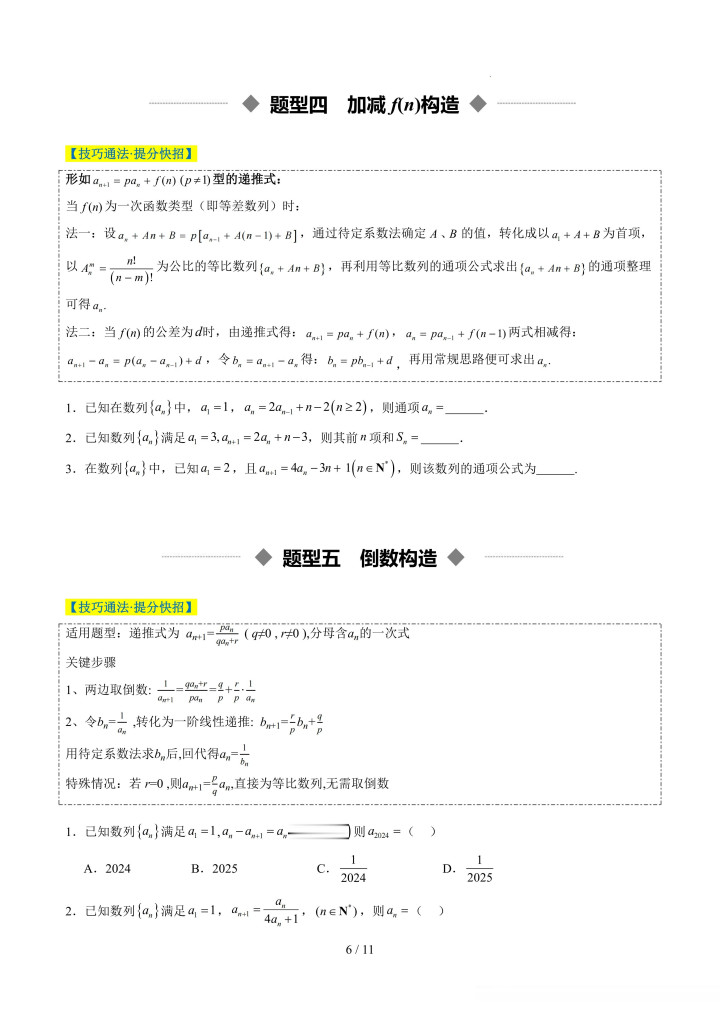 ◆ 题型四 加减 f(n)构造 ◆
【技巧通法·提分快招】
形如 aₙ₊₁ = paₙ + f(n) (p ≠ 1) 型的递推式：
当 f(n) 为一次函数类型（即等差数列）时：
法一：设 aₙ + An + B = p[aₙ₋₁ + A(n − 1) + B]，通过待定系数法确定 A、B 的值，转化成以 a₁ + A + B 为首项，
以 Aₙᵐ = n!/(n − m)! 为公比的等比数列{aₙ + An + B}，再利用等比数列的通项公式求出{aₙ + An + B}的通项整理
可得 aₙ.
法二：当 f(n) 的公差为 d时，由递推式得：aₙ₊₁ = paₙ + f(n)，aₙ = paₙ₋₁ + f(n − 1) 两式相减得：
aₙ₊₁ − aₙ = p(aₙ − aₙ₋₁) + d，令 bₙ = aₙ₊₁ − aₙ 得：bₙ = pbₙ₋₁ + d，再用常规思路便可求出 aₙ.
1．已知在数列{aₙ}中，a₁ = 1，aₙ = 2aₙ₋₁ + n − 2(n ≥ 2)，则通项 aₙ = ______．
2．已知数列{aₙ}满足 a₁ = 3, aₙ₊₁ = 2aₙ + n − 3，则其前 n 项和 Sₙ = ______．
3．在数列{aₙ}中，已知 a₁ = 2，且 aₙ₊₁ = 4aₙ − 3n + 1(n ∈ N*)，则该数列的通项公式为______.
◆ 题型五 倒数构造 ◆
【技巧通法·提分快招】
适用题型：递推式为 aₙ₊₁=paₙ/(qaₙ+r) ( q≠0 , r≠0 ),分母含aₙ的一次式
关键步骤
1、两边取倒数: 1/aₙ₊₁=(qaₙ+r)/(paₙ)=q/p+r/p·1/aₙ
2、令bₙ=1/aₙ ,转化为一阶线性递推: bₙ₊₁=r/p bₙ+q/p
用待定系数法求bₙ后,回代得aₙ=1/bₙ
特殊情况：若 r=0 ,则aₙ₊₁=p/q aₙ,直接为等比数列,无需取倒数
1．已知数列{aₙ}满足 a₁ = 1, aₙ − aₙ₊₁ = aₙ 则 a₂₀₂₄ =（ ）
A．2024 B．2025 C．1/2024 D．1/2025
2．已知数列{aₙ}满足 a₁ = 1，aₙ₊₁ = aₙ/(4aₙ + 1)，(n ∈ N*)，则 aₙ =（ ）
6 / 11